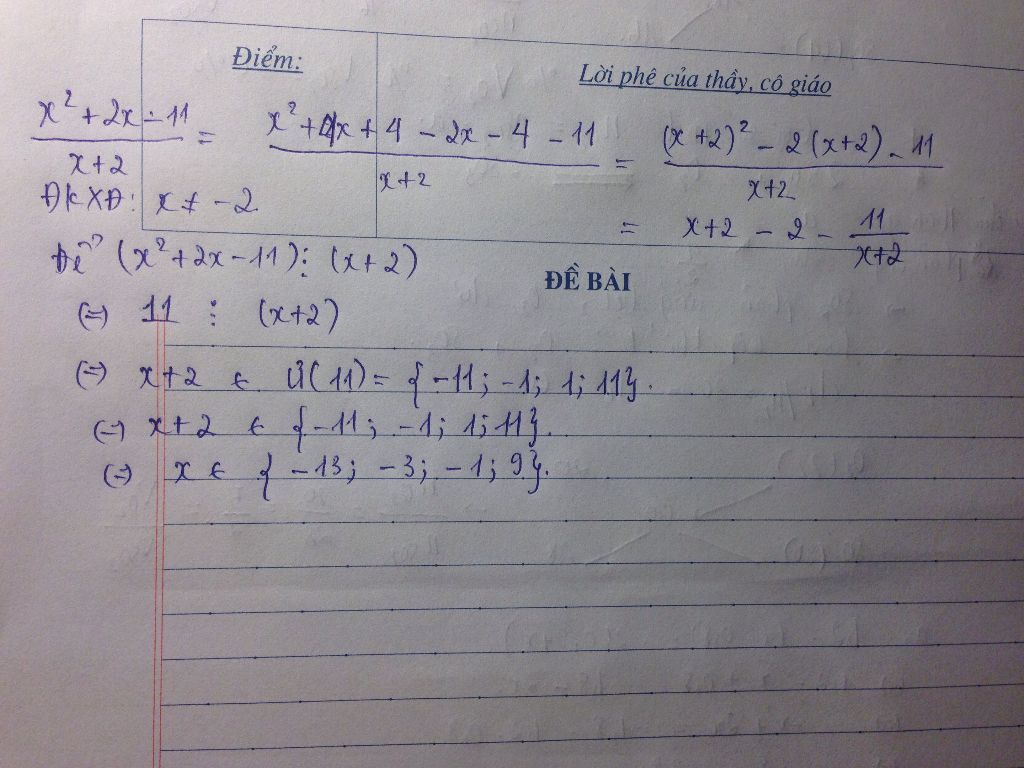 Điểm:
Lời phê của thầy, cô giáo
x² + 2x - 11 / x+2 = x² + 4x + 4 - 2x - 4 - 11 / x+2 = (x+2)² - 2(x+2) - 11 / x+2
ĐKXĐ: x ≠ -2
= x+2 - 2 - 11 / x+2
Để (x² + 2x - 11) ⋮ (x+2)
ĐỀ BÀI
(=) 11 ⋮ (x+2)
(=) x+2 ∈ Ư(11) = {-11; -1; 1; 11}.
(=) x+2 ∈ {-11; -1; 1; 11}.
(=) x ∈ {-13; -3; -1; 9}.